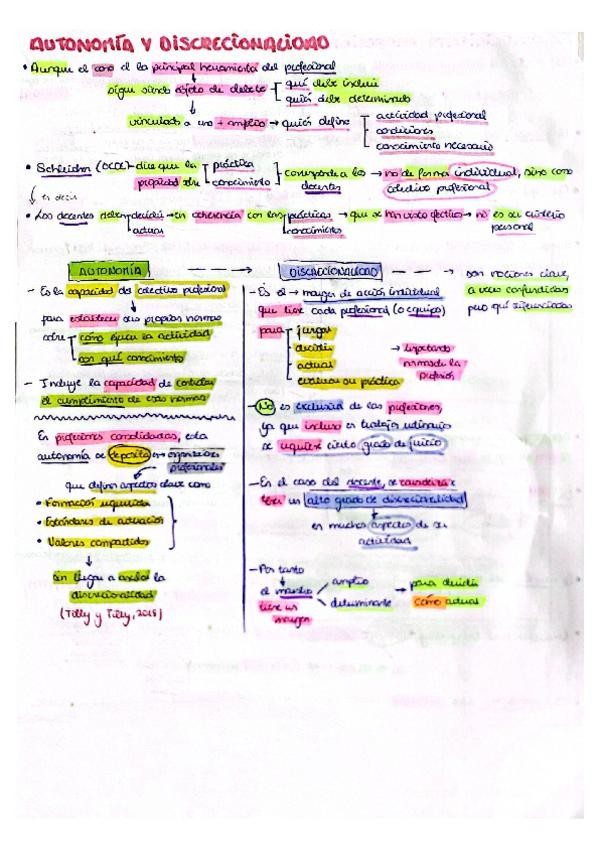 AUTONOMÍA Y DISCRECIONALIDAD
• Aunque el cono el la principal herramienta del profesional
sigue siendo objeto de debate
qué debe incluir
quién debe determinarlo
vinculado a uno + amplio → quién define
actividad profesional
condiciones
conocimiento necesario
• Schleicher (OCDE) → dice que la
práctica
propiedad del
conocimiento
corresponde a los
docentes
→ no de forma individual, sino como
colectivo profesional
↓ es decir
• Los docentes deben
decidir
actuar
→ en coherencia con las
prácticas
conocimiento
→ que se han visto efectivos → no es su criterio
personal
AUTONOMÍA
→
DISCRECIONALIDAD
→ son nociones clave,
a veces confundidas
pero que diferenciadas
- Es la capacidad del colectivo profesional
para establecer sus propias normas
sobre
cómo ejercer la actividad
con qué conocimiento
- Incluye la capacidad de controlar
el cumplimiento de esas normas
En profesiones consolidadas, esta
autonomía se deposita en organizaciones
profesionales
que definen aspectos clave como
• Formación requerida
• Estándares de actuación
• Valores compartidos
sin llegar a anular la
discrecionalidad
(Tilly y Tilly, 2018)
- Es el → margen de acción individual
que tiene cada profesional (o equipo)
para
juzgar
decidir
actuar
evaluar su práctica
→ respetando
normas de la
profesión
- No es exclusiva de las profesiones,
ya que incluso en trabajos rutinarios
se requiere cierto grado de juicio
- En el caso del docente, se considera
tener un alto grado de discrecionalidad
en muchos aspectos de su
actividad
- Por tanto
el maestro
tiene un
margen
amplio
determinante
→ para decidir
cómo actuar